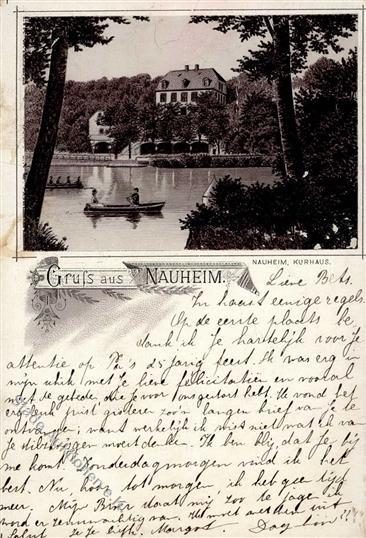 NAUHEIM, KURHAUS.
Gruss aus NAUHEIM.
Lieve Bets.
In haast eenige regels.
Op de eerste plaats be
dank ik je hartelijk voor je
attentie op Pa's 25 jarig feest. Ik was erg in
mijn schik met je lieve felicitatien en vooral
met de gebeden, die je voor ons gestort hebt. Ik vond het
erg leuk juist gisteren zoo'n langen brief van je te
ontvangen; want werkelijk ik wist niet wat ik van
je stilzwijgen moest denken. Ik ben blij, dat je bij
me komt. Donderdagmorgen vind ik het
best. Nu, hoor, tot morgen, ik heb geen tijd
meer. Mijn Broer daat mij zoo te jage ik
word er zenuwachtig van. Ik moet met hem uit.
Salut. Je Margot. Dag hoor!!